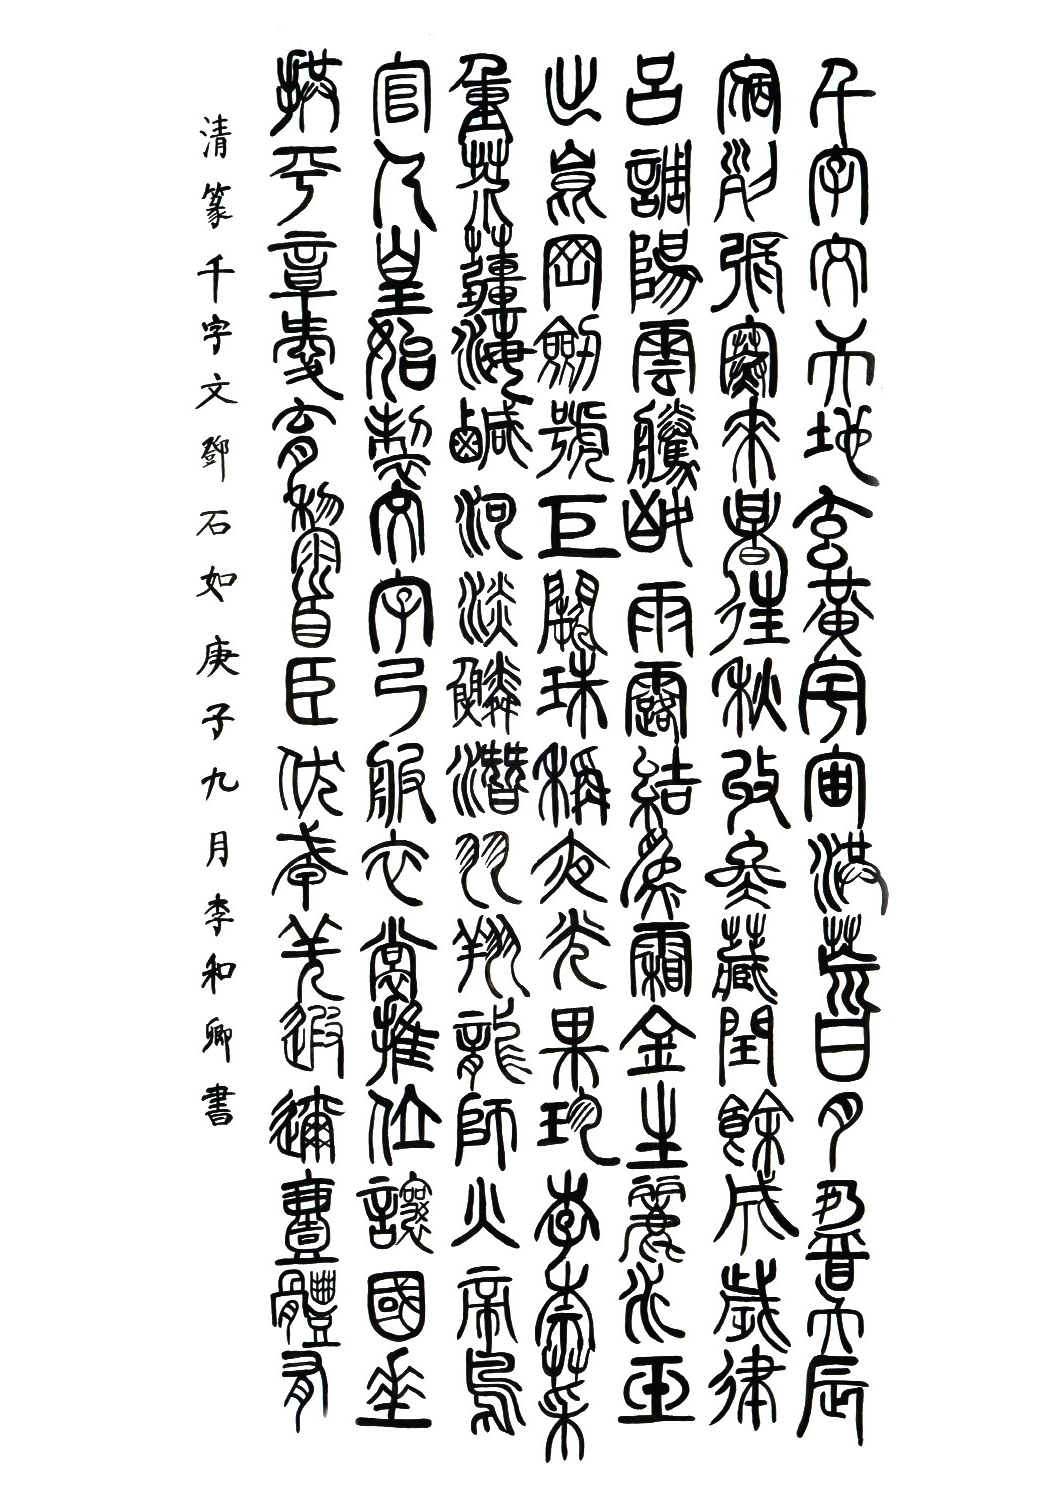 千字文天地玄黃宇宙洪荒日月盈昃辰
宿列張寒來暑往秋收冬藏閏餘成歲律
呂調陽雲騰致雨露結為霜金生麗水玉
出崑岡劍號巨闕珠稱夜光果珍李柰菜
重芥薑海鹹河淡鱗潛羽翔龍師火帝鳥
官人皇始製文字乃服衣裳推位讓國垂
拱平章愛育黎首臣伏戎羌遐邇壹體有
清篆千字文鄧石如庚子九月李和卿書